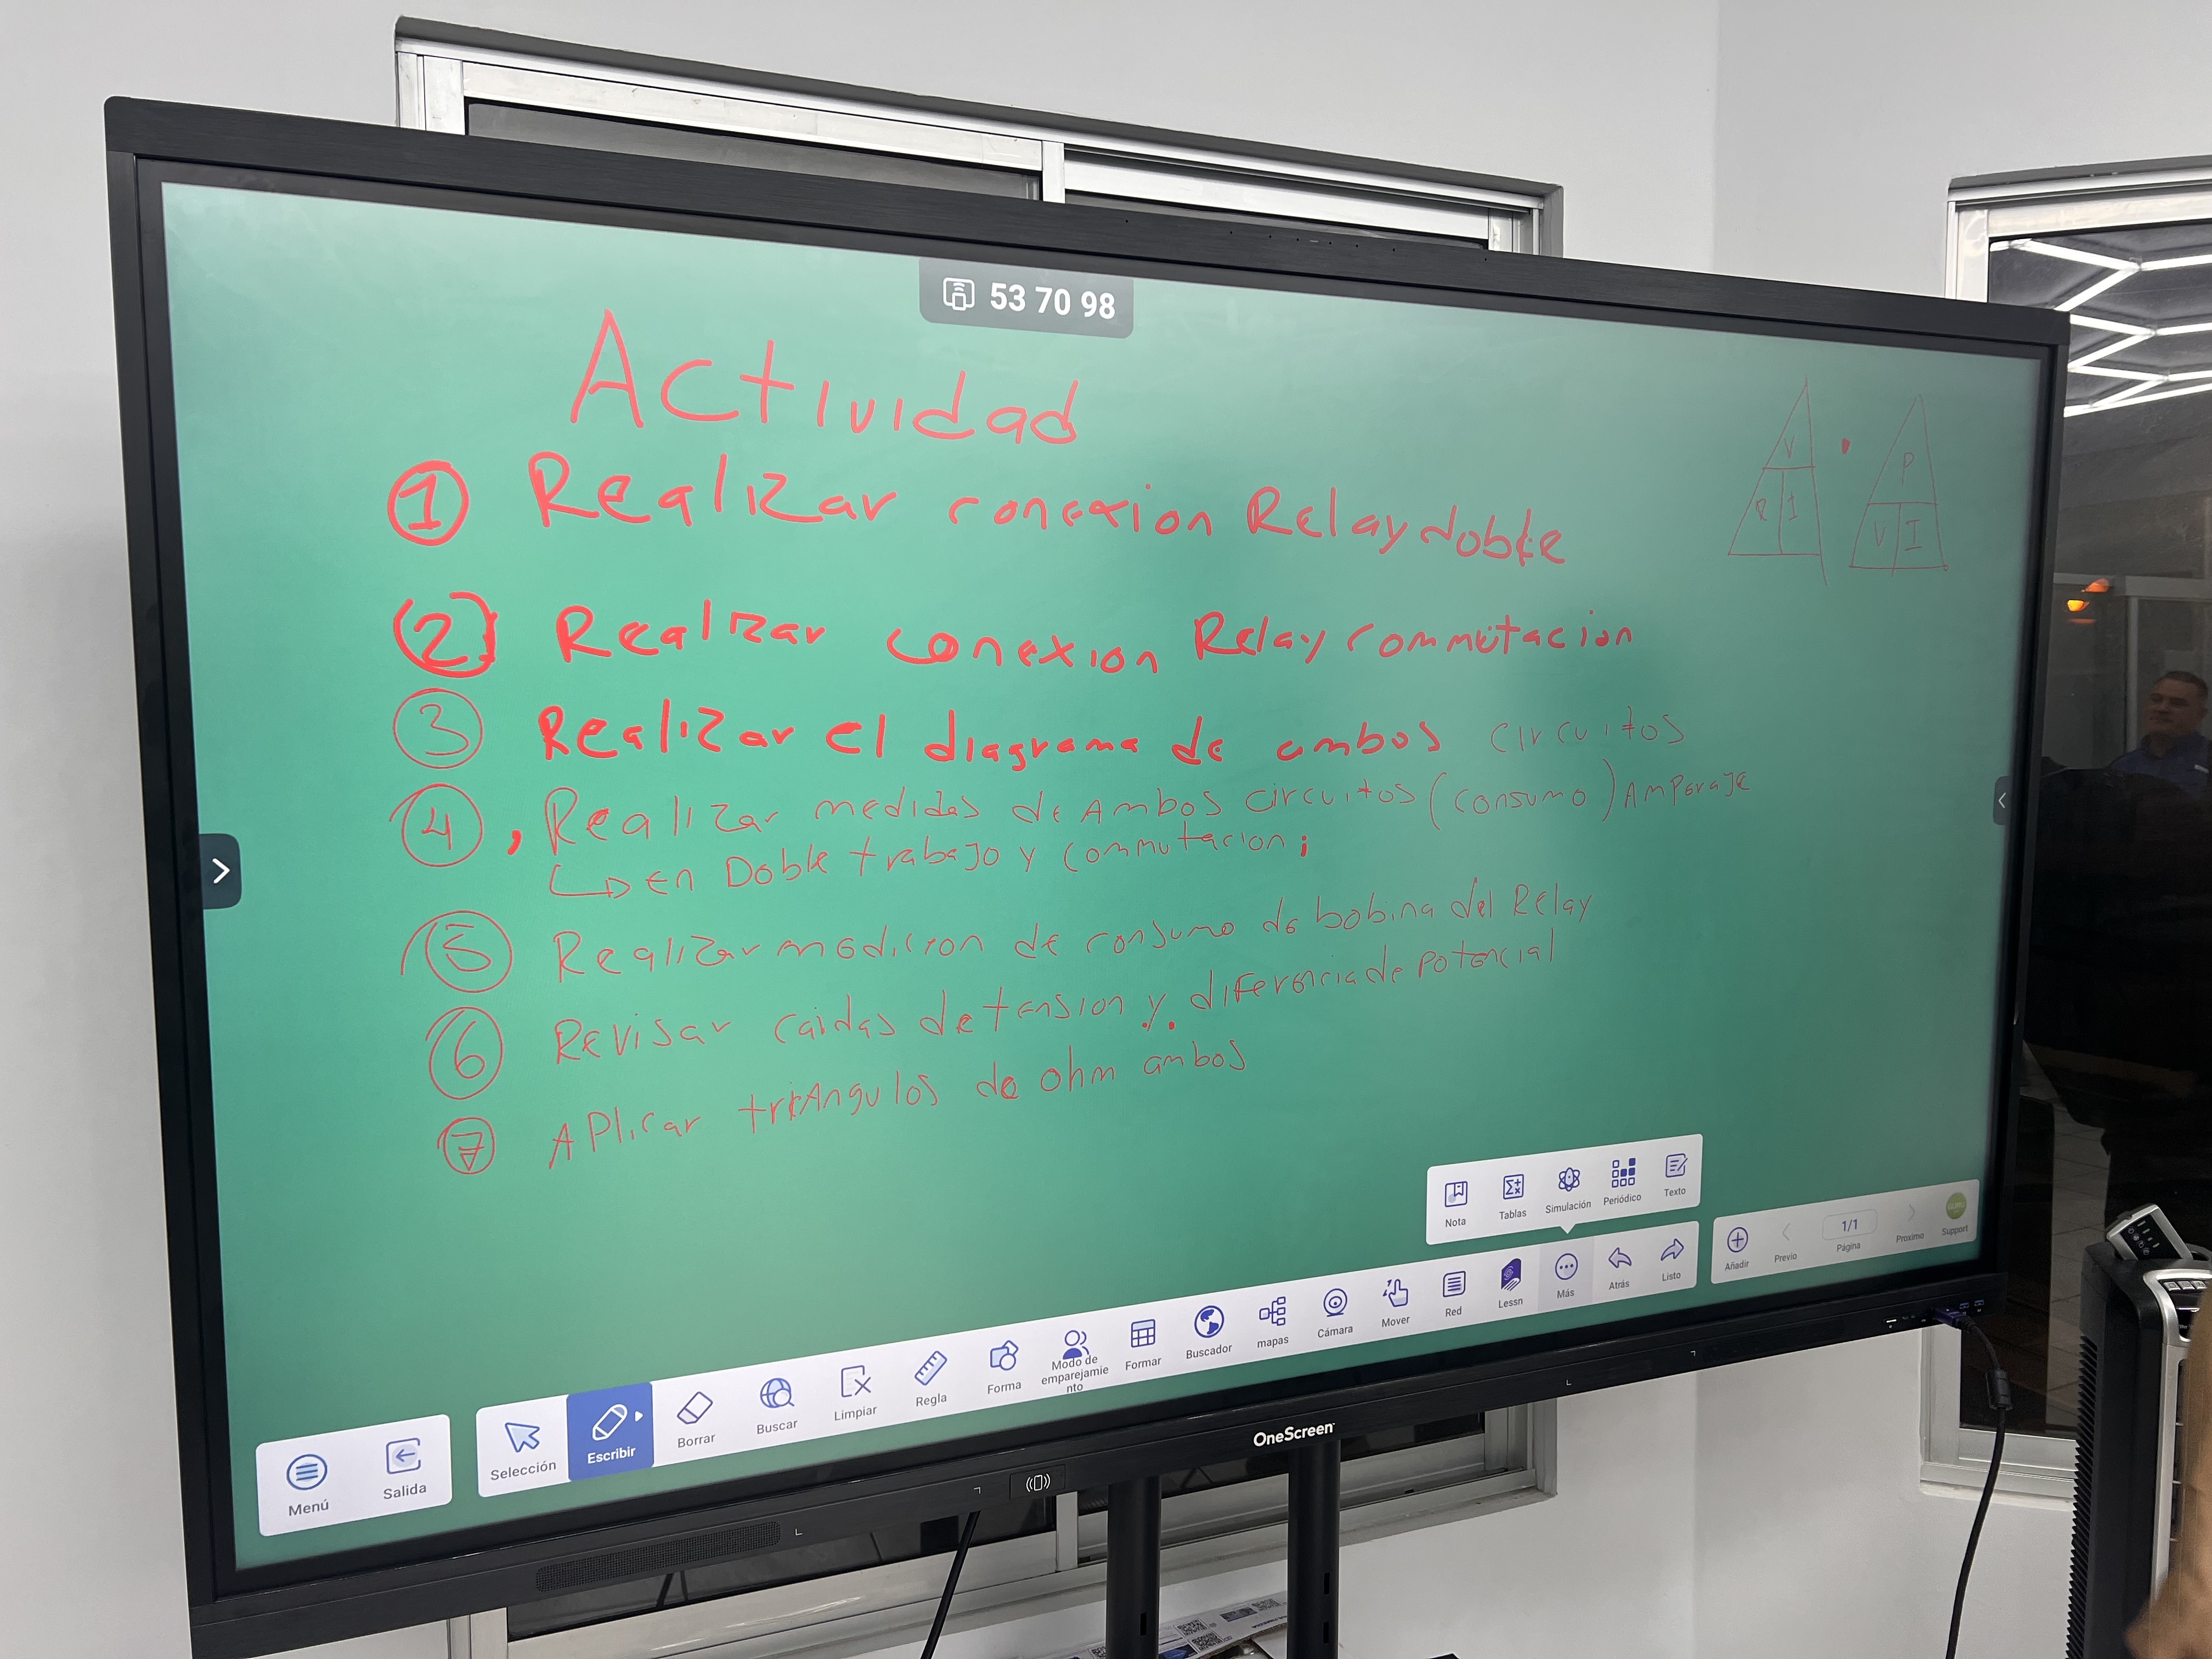 53 70 98
Actividad
① Realizar conexion Relay doble
V
R I
P
V I
(2) Realizar conexion Relay commutacion
③ Realizar el diagrama de ambos circuitos
④, Realizar medidas de Ambos circuitos (consumo) Amperaje
↳ en Doble trabajo y commutacion;
⑤ Realizar medicion de consumo de bobina del Relay
⑥ Revisar caidas de tension y. diferencia de potencial
⑦ Aplicar triangulos de ohm ambos
Nota Tablas Simulación Periódico Texto
Menú Salida Selección Escribir Borrar Buscar Limpiar Regla Forma Modo de emparejamie nto Formar Buscador mapas Cámara Mover Red Lessn Más Atrás Listo
Añadir Previo 1/1 Página Proximo Support
OneScreen